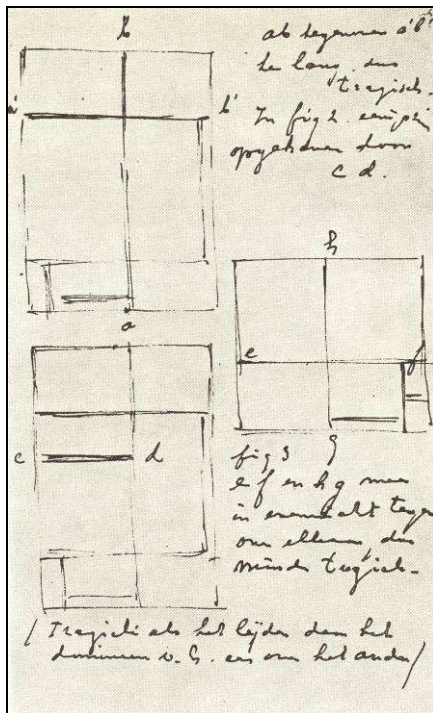 b
ab tegenover a'b'
te lang, dus
tragisch.
In fig 2. eenigszins
opgeheven door
c d.
a'
b'
a
h
e
f
g
c
d
fig 3
e f en h g meer
in evenwicht tegen
over elkaar, dus
minder tragisch.
/ Tragiek als het lijden door het
domineeren v. h. een over het andere /